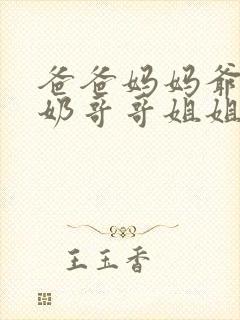 爸爸妈妈爷
奶哥哥姐姐
王玉香